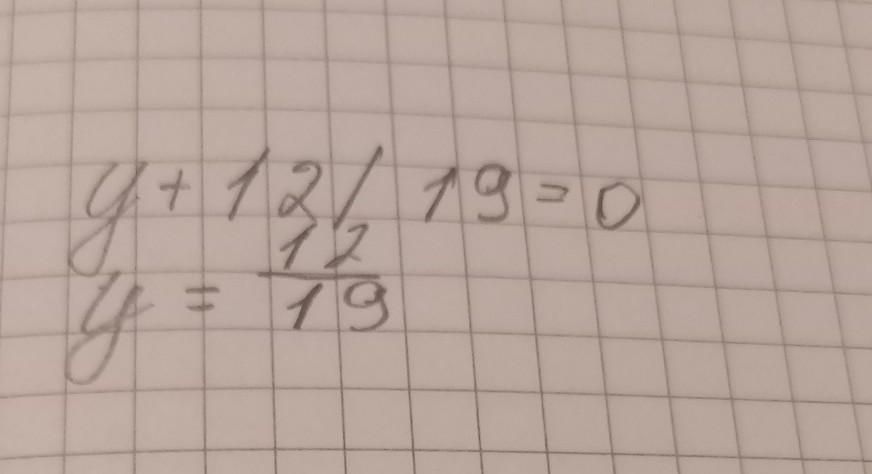 y + 12 / 19 = 0
y = 12/19